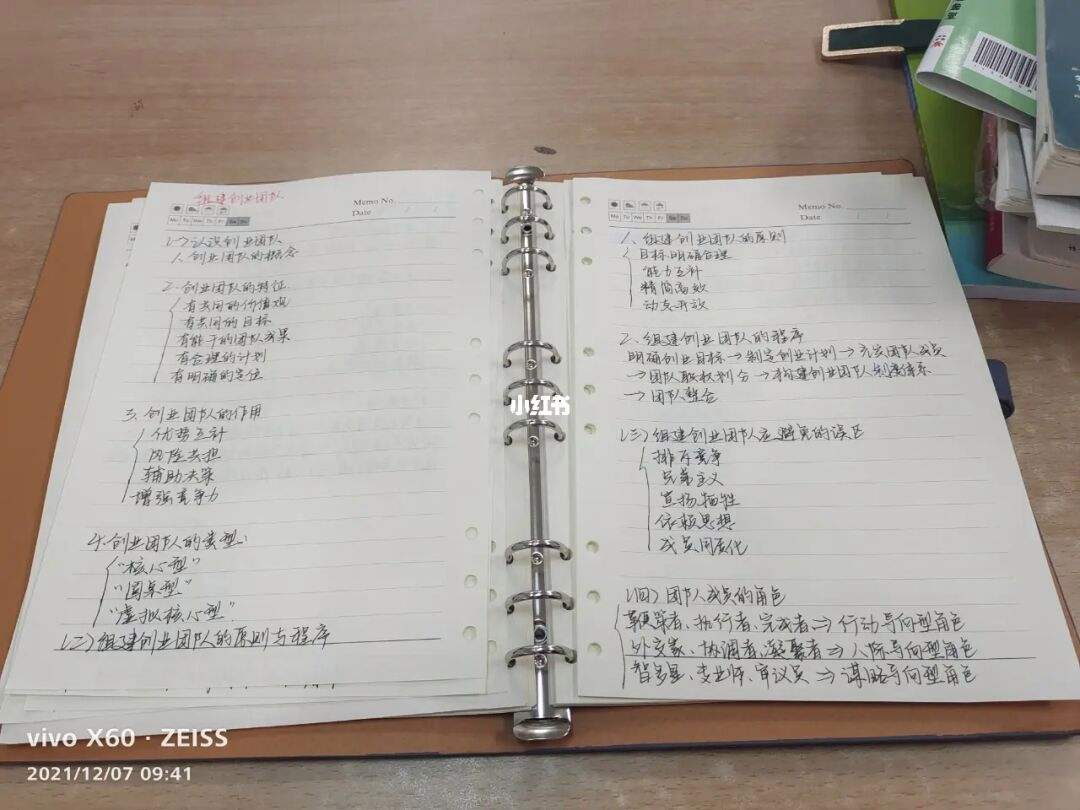 组建创业团队
Memo No.
Date
Mo Tu We Th Fr Sa Su
(一)认识创业团队
1.创业团队的概念
2.创业团队的特征
有共同的价值观
有共同的目标
有能干的团队成果
有合理的计划
有明确的定位
3.创业团队的作用
优势互补
风险共担
辅助决策
增强竞争力
4.创业团队的类型:
"核心型"
"圆桌型"
"虚拟核心型"
(二)组建创业团队的原则与程序
Memo No.
Date
Mo Tu We Th Fr Sa Su
1、组建创业团队的原则
目标明确合理
能力互补
精简高效
动态开放
2、组建创业团队的程序
明确创业目标→制定创业计划→充实团队成员
→团队职权划分→构建创业团队制度体系
→团队整合
(三)组建创业团队应避免的误区
排斥竞争
兄弟主义
宣扬牺牲
依赖思想
成员同质化
(四)团队成员的角色
鞭策者、执行者、完成者⇒行动导向型角色
外交家、协调者、凝聚者⇒人际导向型角色
智多星、专业师、审议员⇒谋略导向型角色
小红书
vivo X60 · ZEISS
2021/12/07 09:41